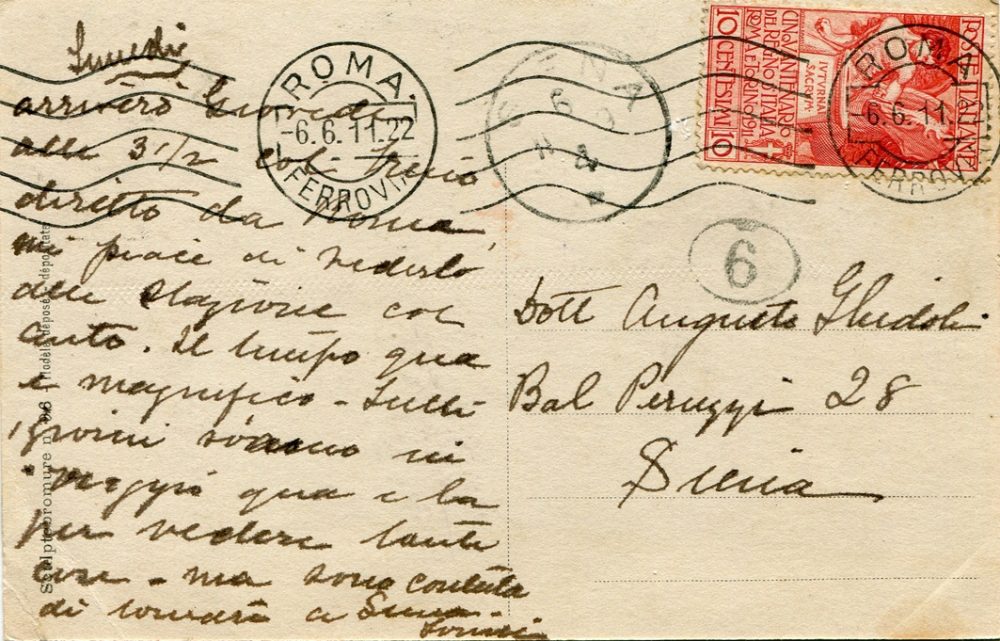 Lunedì
arriverò Giovedì
alle 3 1/2 col treno
diretto da Roma,
mi piace di vederlo
alle stazione col
auto. Il tempo qua
è magnifico - tutti
i giorni siamo in
viaggio qua e la
per vedere tante
cose - ma sono contenta
di tornare a Siena -
ROMA.
-6.6.11.22
FERROVIA
6
CINQVANTENARIO
DEL REGNO D'ITALIA
ROMA E TORINO 1911
IVTVRNAI
SACRVM
10 CENTESIMI 10
POSTE ITALIANE
ROMA
-6.6.11.
FERROVI
6
Dott Augusto Ghidoli
Bal Peruzzi 28
Siena
Sculptobromure n. 06 - Modèle déposé - depositata